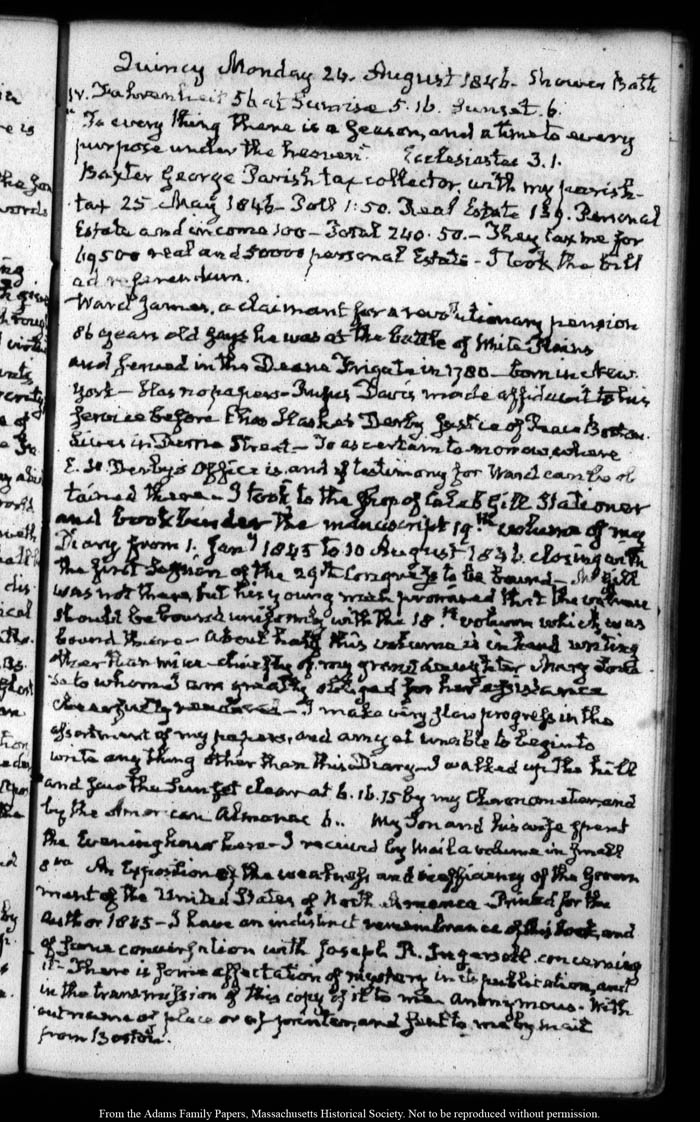 Quincy Monday 24. August 1846. Shower Bath
IV. Fahrenheit 56 at Sunrise 5.16. Sunset. 6.
To every thing there is a Season, and a time to every
purpose under the heaven. Ecclesiastes 3.1.
Baxter George Parish tax collector, with my parish-
tax 25 May 1846 - Poll 1:50. Real Estate 139. Personal
Estate and income 100 - Total 240.50. - They tax me for
69500 real and 50000 personal Estate - I took the bill
ad referendum.
Ward James, a claimant for a revolutionary pension
86 years old says he was at the battle of White Plains
and served in the Deane Frigate in 1780 - born in New
York - Has no papers - Rufus Davis made affidavit to his
service before Elias Hasket Derby Justice of Peace Boston.
Lives in Street - To ascertain to-morrow, where
E. H. Derby's Office is, and if testimony for Ward can be ob
tained there - I took to the shop of Caleb Gill Stationer
and bookbinder the manuscript 19.th volume of my
Diary from 1. Jany 1845 to 10 August 1846. closing with
the first Session of the 29th Congress to be bound - Mr Gill
was not there, but his young man promised that the volume
should be bound uniformly with the 18.th volume which was
bound there - About half this volume is in hand writing
other than mine - chiefly of my grand daughter Mary Loui
sa to whom I am greatly obliged for her assistance
cheerfully rendered - I make very slow progress in the
assortment of my papers, and am yet unable to begin to
write any thing other than this Diary - I walked up the hill
and saw the Sun set clear at 6.16.15 by my Chronometer, and
by the American Almanac 6.. My Son and his wife spent
the Evening hour here - I received by Mail a volume in small
8vo An Exposition of the weakness and inefficiency of the Govern
ment of the United States of North America Printed for the
author 1845 - I have an indistinct remembrance of this book, and
of some conversation with Joseph R. Ingersoll concerning
it - There is some affectation of mystery in its publication, and
in the transmission of this copy of it to me. Anonymous. With
out name or place or of printer, and sent to me by mail
from Boston.
From the Adams Family Papers, Massachusetts Historical Society. Not to be reproduced without permission.